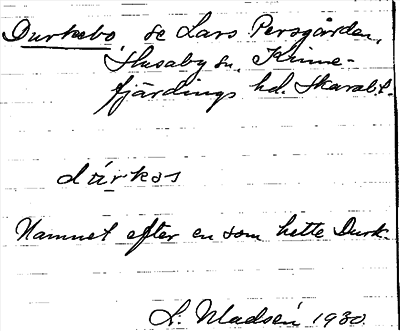 Durkebo, se Lars Persgården,
Husaby sn, Kinne-
fjärdings hd. Skarab.l.
dúrkas
Namnet efter en som hette Durk.
L. Madsén 1930